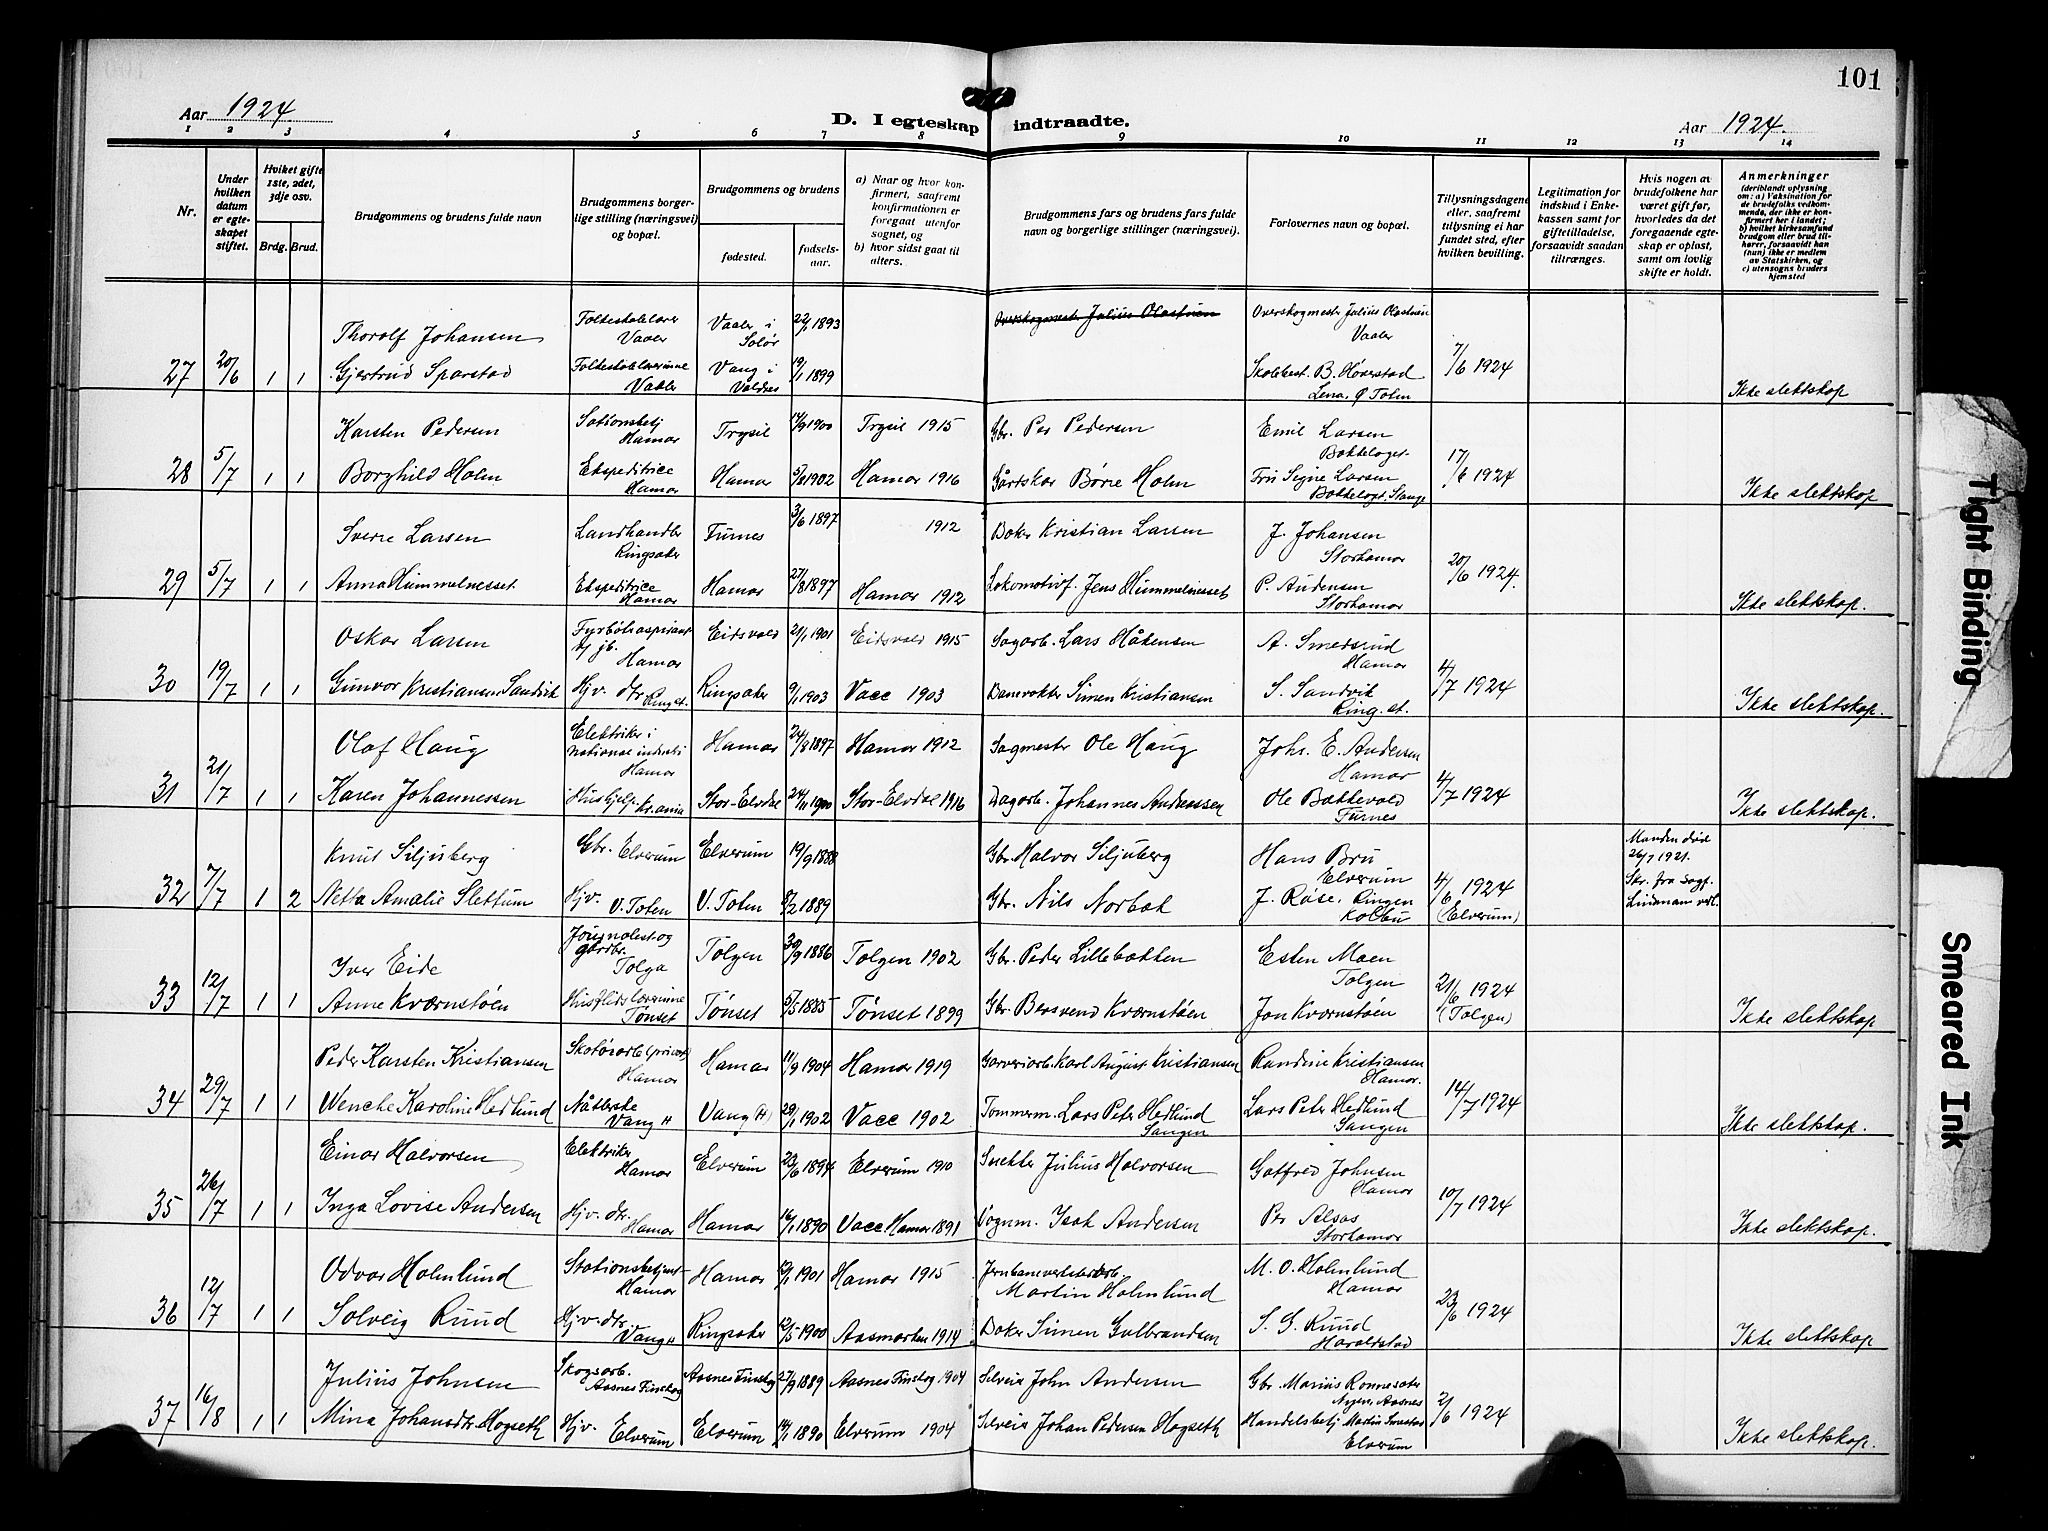 101
Aar 1924
D. I egteskap indtraadte.
Aar 1924.
1 2 3 4 5 6 7 8 9 10 11 12 13 14
Nr.
Under hvilken datum er egteskapet stiftet.
Hvilket gifte 1ste, 2det, 3dje osv.
Brdg. Brud.
Brudgommens og brudens fulde navn
Brudgommens borgerlige stilling (næringsvei) og bopæl.
Brudgommens og brudens
fødested.
fødselsaar.
a) Naar og hvor konfirmert, saafremt konfirmationen er foregaat utenfor sognet, og
b) hvor sidst gaat til alters.
Brudgommens fars og brudens fars fulde navn og borgerlige stillinger (næringsvei).
Forlovernes navn og bopæl.
Tillysningsdagene eller, saafremt tillysning ei har fundet sted, efter hvilken bevilling.
Legitimation for indskud i Enkekassen samt for giftetilladelse, forsaavidt saadan tiltrænges.
Hvis nogen av brudefolkene har været gift før, hvorledes da det foregaaende egteskap er opløst, samt om lovlig skifte er holdt.
Anmerkninger (deriblandt oplysning om: a) Vaksination for de brudefolks vedkommende, der ikke er konfirmert her i landet; b) hvilket kirkesamfund brudgom eller brud tilhører, forsaavidt han (hun) ikke er medlem av Statskirken, og c) utensogns bruders hjemsted
Thorolf Johansen Folkeskolelærer Vaaler Vaaler i Solør 22/1 1893 Overskogmester Julius Olastuen Overskogmester Julius Olastuen Vaaler
27 20/6 1 1 Gjertrud Sparstad Folkeskolelærerinne Vaaler Vang i Valdres 19/1 1899 Skolebest. B. Høverstad Lena, Ø Toten 7/6 1924 Ikke slektskap
Karsten Pedersen Stationsbetj Hamar Trysil 14/9 1900 Trysil 1915 Gbr. Per Pedersen Emil Larsen Bækkelaget
28 5/7 1 1 Borghild Holm Ekspeditrice Hamar Hamar 5/8 1902 Hamar 1916 Gårtskar Børre Holm Fru Signe Larsen Bækkelagt. Stange 17/6 1924 Ikke slektskap
Sverre Larsen Landhandler Ringsaker Furnes 3/6 1897 1912 Baker Kristian Larsen J. Johansen Storhamar
29 5/7 1 1 Anna Hummelnesset Ekspeditrice Hamar Hamar 27/8 1897 Hamar 1912 Lokomotivf. Jens Hummelnesset P. Andersen Storhamar 20/6 1924. Ikke slektskap.
Oskar Larsen Fyrbøteraspirant v/ jb. Hamar Eidsvold 21/1 1901 Eidsvold 1915 Sagarb. Lars Håkensen A. Smedsrud Hamar
30 19/7 1 1 Gunvor Kristiansen Sandvik Hjv. dtr. Ring st. Ringsaker 9/1 1903 Vacc 1903 Banevokter Simen Kristiansen S. Sandvik Ring. st. 4/7 1924 Ikke slektskap.
Olaf Haug Elektriker i national industri Hamar Hamar 24/8 1897 Hamar 1912 Sagmester Ole Haug Johs. E. Andersen Hamar
31 21/7 1 1 Karen Johannessen Hushjelp Kr.ania Stor-Elvdal 24/11 1900 Stor-Elvdal 1916 Dagarb. Johannes Andreassen Ole Bakkevold Furnes 4/7 1924 Ikke slektskap.
Knut Siljuberg Gbr. Elverum Elverum 19/9 1888 Gbr Halvor Siljuberg Hans Bru Elverum Manden død 26/7 1921.
32 7/7 1 2 Netta Amalie Slettum Hjv. V. Toten V. Toten 8/2 1889 Gbr. Nils Norbak J. Røse, Ringen Kolbu 4/6 1924 (Elverum) Skr. fra sagf. Lindemann vedl.
Iver Eide Journalist og gårdbr. Tolga Tolgen 30/9 1886 Tolgen 1902 Gbr. Peder Lillebakken Esten Moen Tolgen
33 12/7 1 1 Anne Kværnstøen Husflidslærerinne Tønset Tønset 5/5 1885 Tønset 1899 Gbr Bersvend Kværnstøen Jon Kværnstøen 21/6 1924 (Tolgen) Ikke slektskap
Peder Karsten Kristiansen Skotøiarb. (privat) Hamar Hamar 11/9 1904 Hamar 1919 Garveriarb. Karl August Kristiansen Randine Kristiansen Hamar.
34 29/7 1 1 Wenche Karoline Hedlund Nåtlerske Vang H Vang (H) 29/1 1902 Vacc 1902 Tømmerm. Lars Peter Hedlund Sangen Lars Peter Hedlund Sangen 14/7 1924 Ikke slektskap.
Einar Halvorsen Elektriker Hamar Elverum 23/6 1894 Elverum 1910 Snekker Julius Halvorsen Gotfred Johnsen Hamar
35 26/7 1 1 Inga Lovise Andersen Hjv. dtr. Hamar Hamar 16/1 1890 Vacc. Hamar 1891 Vognm. Isak Andersen Per Alsas Storhamar 10/7 1924 Ikke slektskap.
Odvar Holmlund Stationsbetjent Hamar Hamar 1901 Hamar 1915 Jernbaneverkstedarb. Martin Holmlund M. O. Holmlund Hamar
36 12/7 1 1 Solveig Ruud Hjv. dtr. Vang H Ringsaker 12/5 1900 Aasmarken 1914 Baker Simen Gulbrandsen S. G. Ruud Haraldstad 23/6 1924 Ikke slektskap
Julius Johnsen Skogsarb. Aasnes Finskog Aasnes Finskog 27/9 1889 Aasnes Finskog 1904 Selveir John Andersen Gbr. Marius Rønnesæter Nyen, Aasnes
37 16/8 1 1 Mina Johansdtr. Hogseth Hjv. Elverum Elverum 14/1 1890 Elverum 1904 Selveir Johan Pedersen Hogseth Handelsbetj Martin Smestad Elverum 2/6 1924 Ikke slektskap.
Tight Binding
Smeared Ink